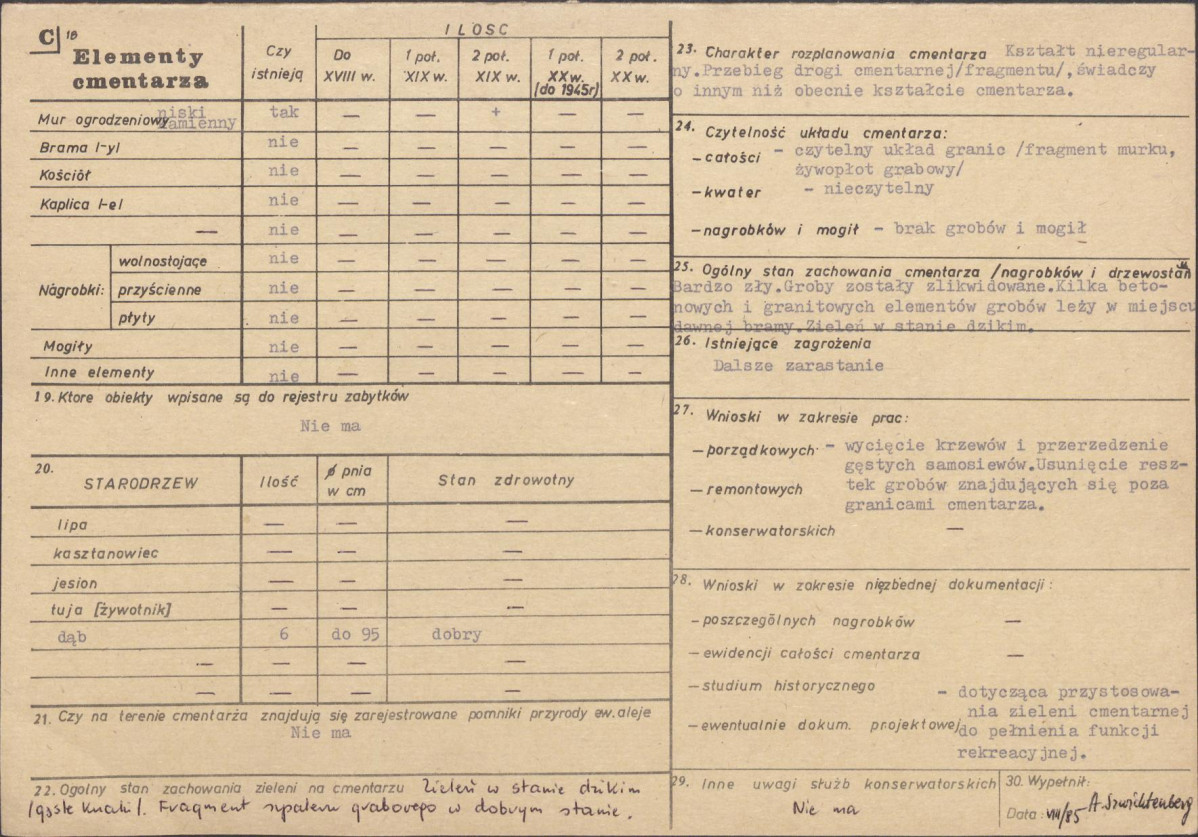 C 18
Elementy
cmentarza
Czy
istnieją
ILOSC
Do
XVIII w.
1 poł.
XIX w.
2 poł.
XIX w.
1 poł.
XX w.
(do 1945r)
2 poł.
XX w.
Mur ogrodzeniowy niski kamienny tak — — + — —
Brama l-yl nie — — — — —
Kościół nie — — — — —
Kaplica l-el nie — — — — —
— nie — — — — —
Nagrobki: wolnostojące nie — — — — —
przyścienne nie — — — — —
płyty nie — — — — —
Mogiły nie — — — — —
Inne elementy nie — — — — —
19. Ktore obiekty wpisane są do rejestru zabytków
Nie ma
20. STARODRZEW Ilość ø pnia w cm Stan zdrowotny
lipa — — —
kasztanowiec — — —
jesion — — —
tuja [żywotnik] — — —
dąb 6 do 95 dobry
— — —
— — —
21. Czy na terenie cmentarża znajdują się zarejestrowane pomniki przyrody ew. aleje
Nie ma
22. Ogolny stan zachowania zieleni na cmentarzu Zieleń w stanie dzikim
/gęste krzaki/. Fragment szpaleru grabowego w dobrym stanie.
23. Charakter rozplanowania cmentarza Kształt nieregular-
ny.Przebieg drogi cmentarnej/fragmentu/,świadczy
o innym niż obecnie kształcie cmentarza.
24. Czytelność układu cmentarza:
— całości - czytelny układ granic /fragment murku,
żywopłot grabowy/
— kwater - nieczytelny
— nagrobków i mogił - brak grobów i mogił
25. Ogólny stan zachowania cmentarza /nagrobków i drzewostan
Bardzo zły.Groby zostały zlikwidowane.Kilka beto-
nowych i granitowych elementów grobów leży w miejscu
dawnej bramy.Zieleń w stanie dzikim.
26. Istniejące zagrożenia
Dalsze zarastanie
27. Wnioski w zakresie prac:
— porządkowych - wycięcie krzewów i przerzedzenie
gęstych samosiewów.Usunięcie resz-
— remontowych tek grobów znajdujących się poza
granicami cmentarza.
— konserwatorskich —
28. Wnioski w zakresie niezbędnej dokumentacji:
— poszczególnych nagrobków —
— ewidencji całości cmentarza —
— studium historycznego - dotycząca przystosowa-
nia zieleni cmentarnej
— ewentualnie dokum. projektowej do pełnienia funkcji
rekreacyjnej.
29. Inne uwagi służb konserwatorskich
Nie ma
30. Wypełnił:
Data: VIII/85 A. Szwichtenberg